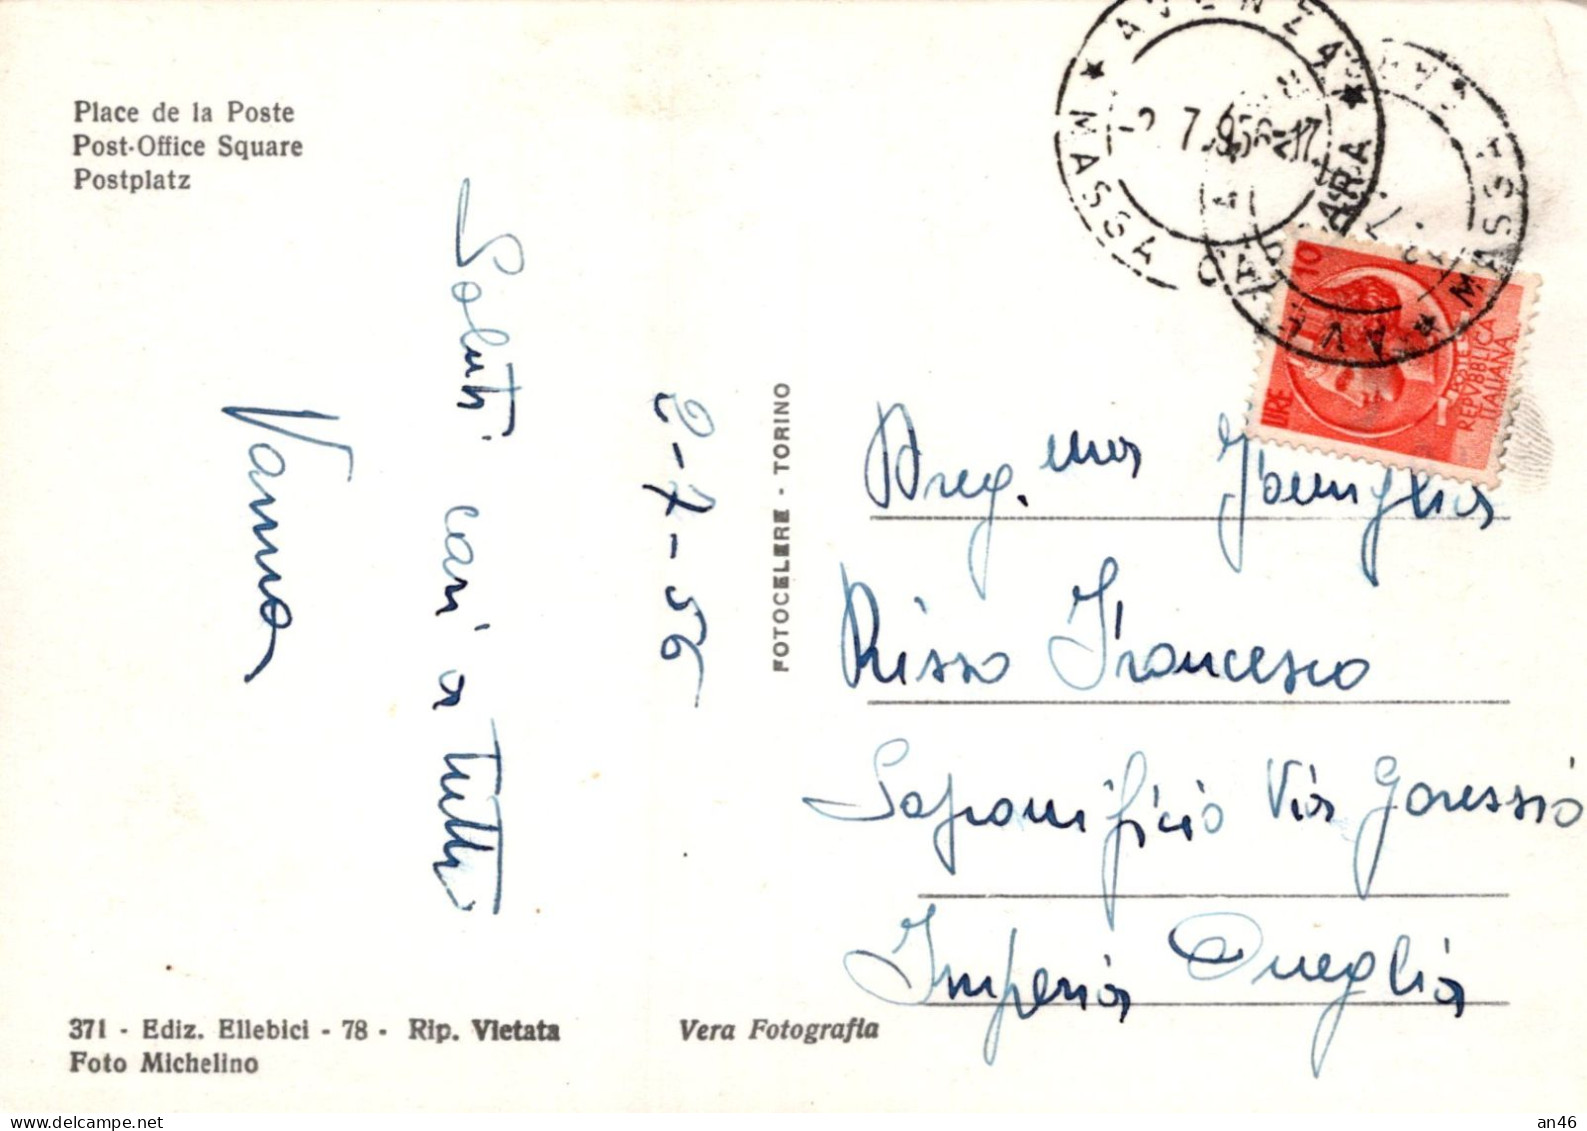 Place de la Poste
Post-Office Square
Postplatz
Saluti cari a tutti
Vanna
2-7-56
FOTOCELERE - TORINO
AVENZA
MASSA CARRARA
-2.7.1956-17
AVE
MASSA
10
LIRE
POSTE
REPVBBLICA
ITALIANA
Preg.ma Famiglia
Risso Francesco
Saponificio Via Garessio
Imperia Oneglia
371 - Ediz. Ellebici - 78 - Rip. Vietata
Foto Michelino
Vera Fotografia
an46